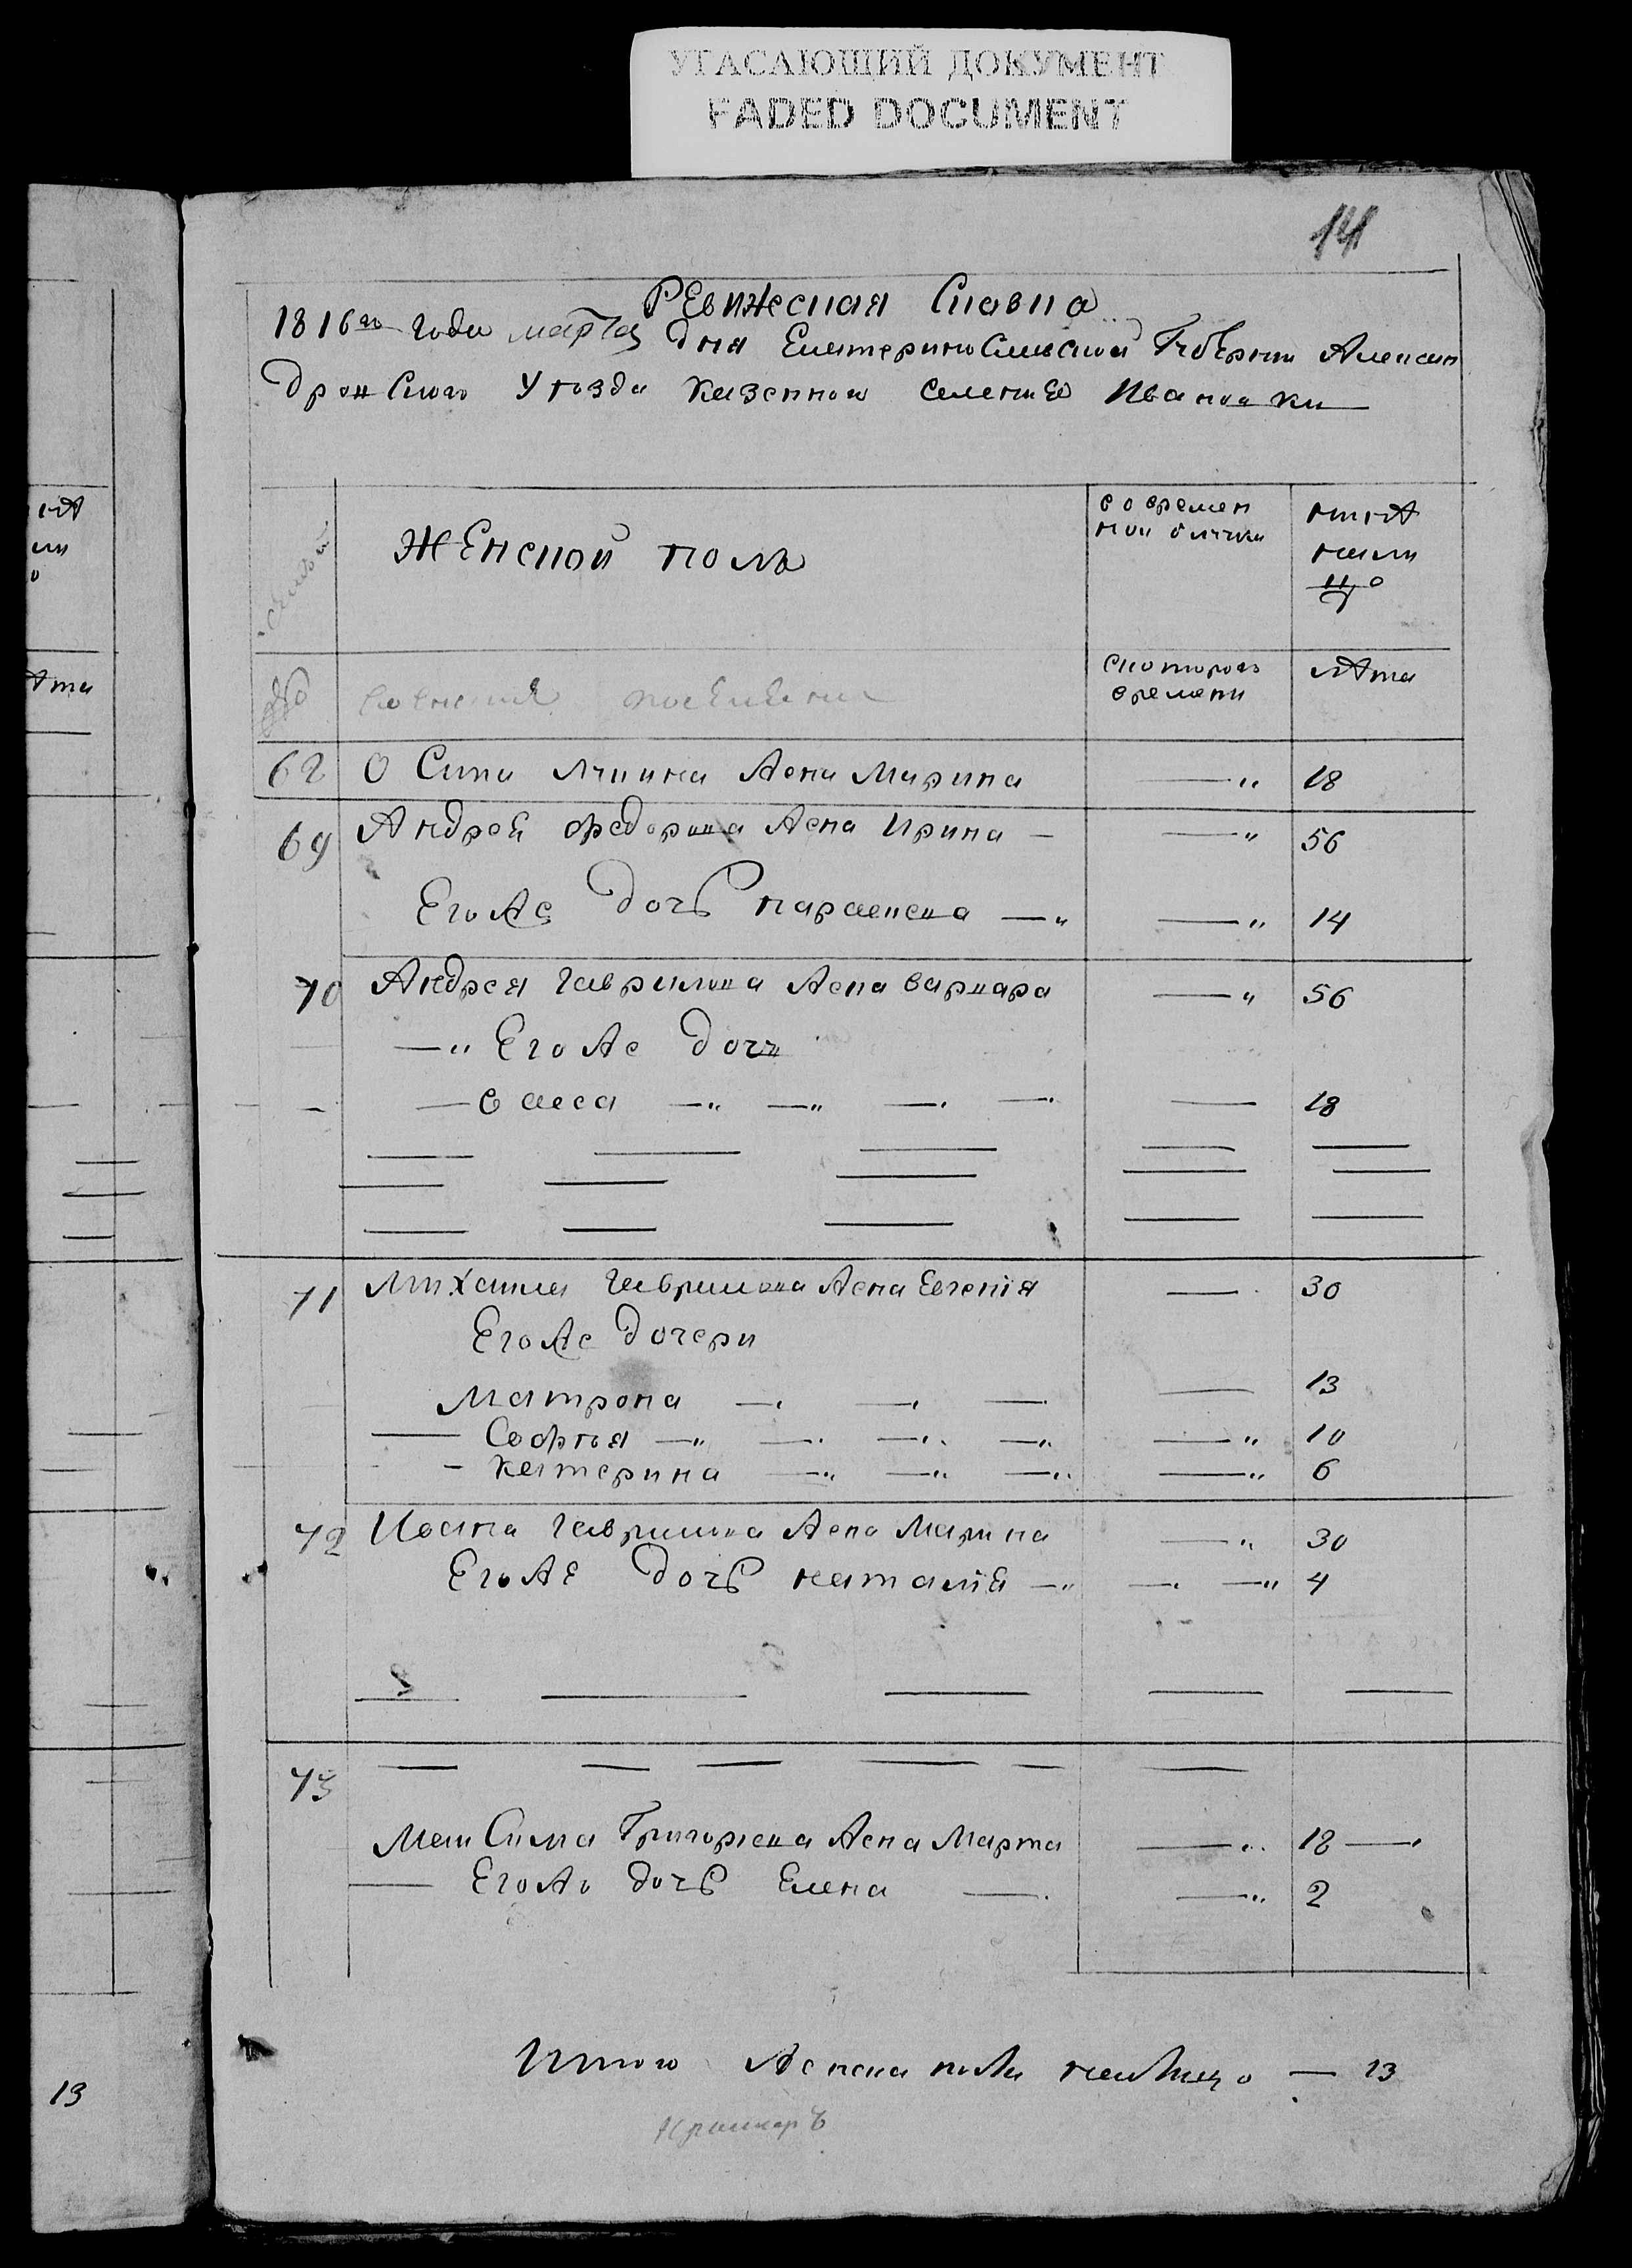 УГАСАЮЩИЙ ДОКУМЕНТ
FADED DOCUMENT
141
РЕвижеская Сказка
1816го года марта дня Екатеринославской Губернии Алексан
дровского Уезда казенного селения Ивановки
Женской пол
во времен
ной отлучке
ныне
на ли
цо
семьи
с которого
времени
лета
62 Осипа жена Марина —„ 18
69 Андрей Федорова жена Ирина — —„ 56
Его же дочь параскева —„ —„ 14
70 Андрея Гаврилова жена варвара —„ 56
—„ Его же дочь
— васса —„ —„ —. —. — 18
71 Михаила Гаврилова жена Евгения — 30
Его же дочери
Матрона —. —. — — 13
— Софья —„ —. —.. —„ —„ 10
- катерина —„ —„ —„ —„ 6
72 Ивана Гаврилова жена Марина —„ 30
Его же дочь наталія —„ —. —„ 4
73
МакСима Григорьева жена Марфа —.. 18 —
— Его же дочь Елена —. —„ 2
Итого женска пола налицо — 13
13